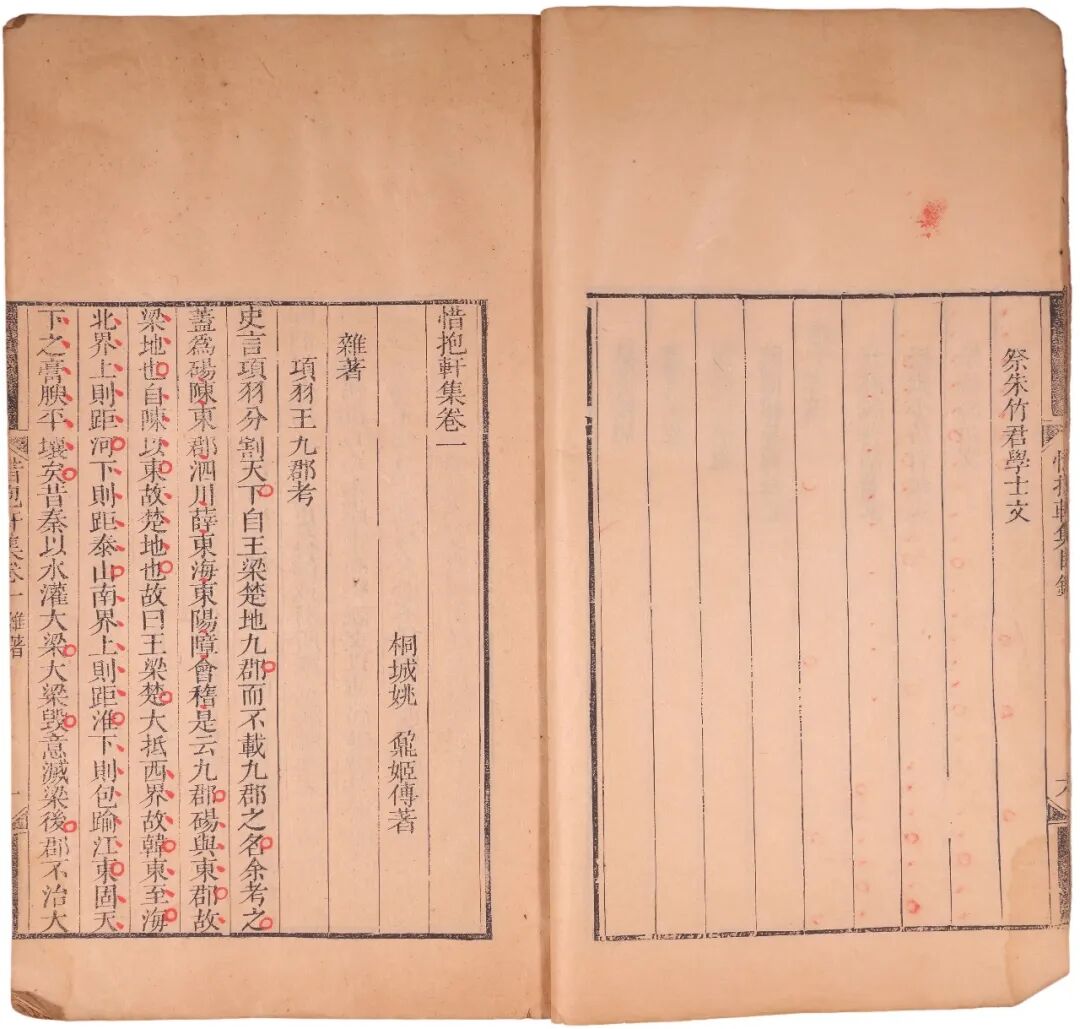 祭朱竹君學士文
惜抱軒集目錄
六
惜抱軒集卷一
桐城姚鼐姬傳著
雜著
項羽王九郡考
史言項羽分割天下自王梁楚地九郡而不載九郡之名余考之
蓋爲碭陳東郡泗川薛東海東陽鄣會稽是云九郡碭與東郡故
梁地也自陳以東故楚地也故曰王梁楚大抵西界故韓東至海
北界上則距河下則距泰山南界上則距淮下則包踰江東固天
下之膏腴平壤矣昔秦以水灌大梁大梁毀意滅梁後郡不治大
惜抱軒集卷一 雜著
一